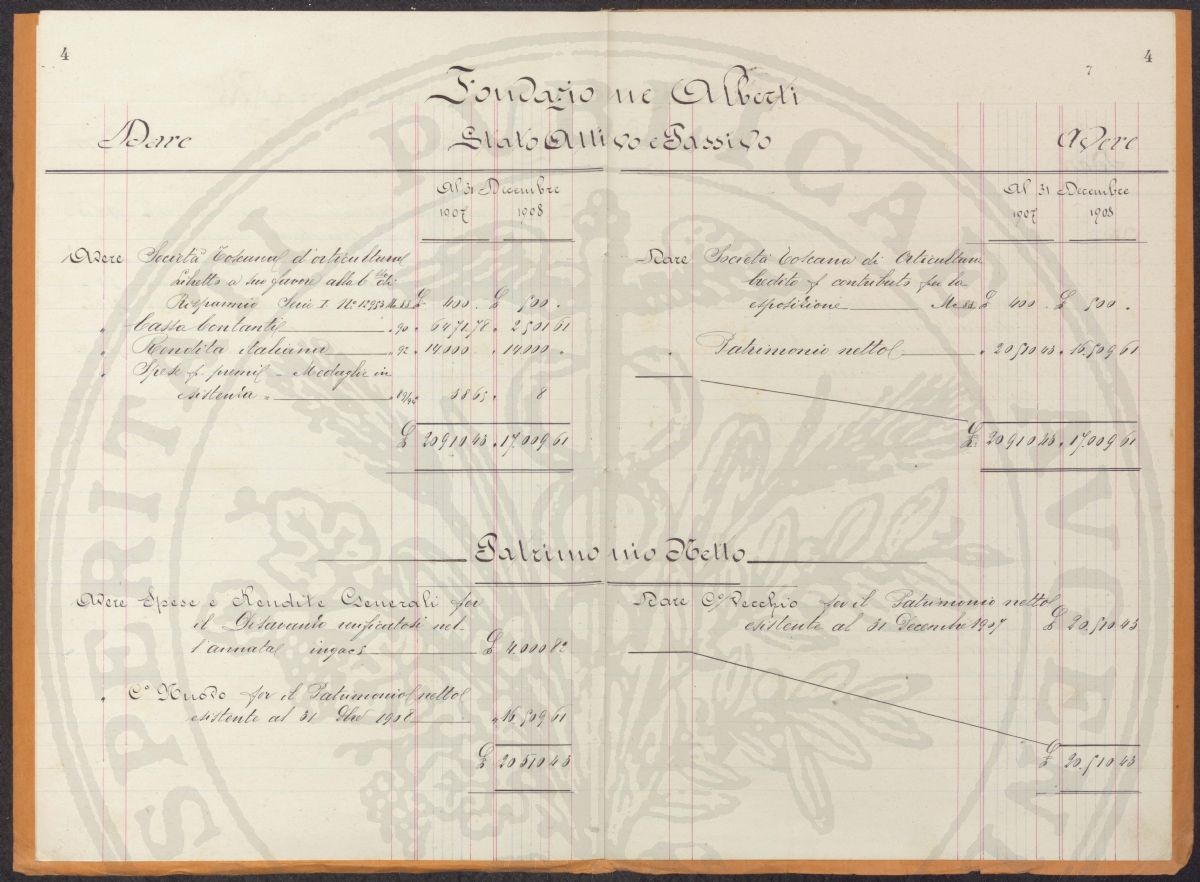 4
4
7
Fondazione Alberti
Dare Stato Attivo e Passivo Avere
Al 31 Decembre
1907 1908
Al 31 Decembre
1907 1908
Avere Società Toscana d'orticultura
Libretto a suo favore alla Cssa di
Risparmio Serie I £ 400. £ 500.
" Cassa Contanti " 90 " 6471.78 " 2501 61
" Rendita italiana " 92 " 14000 " 14000 "
" Spese p. premi - Medaglie in
esistenza " 38 65 " 8
£ 20910 43 " 17.009 61
Dare Società Toscana di Orticultura
Credito p contributo per la
esposizione £ 400 . £ 500 .
" Patrimonio netto " 20510 43 " 16.509 61
£ 20910 43 " 17.009 61
Patrimonio Netto
Avere Spese e Rendite Generali per
il Disavanzo verificatosi nel
l'annata £ 4000 82
" Co Nuovo per il Patrimonio netto
esistente al 31 Dbre 1908 " 16.509 61
£ 20510 43
Dare Co Vecchio per il Patrimonio netto
esistente al 31 Decembre 1907 £ 20.510 43
£ 20.510 43